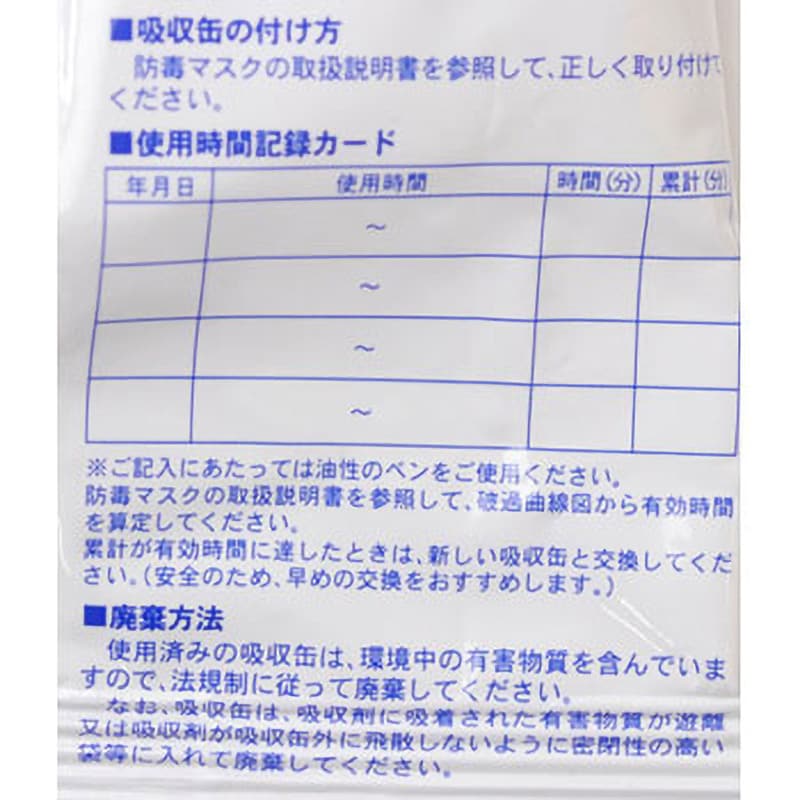 ■吸収缶の付け方
防毒マスクの取扱説明書を参照して、正しく取り付けて
ください。
■使用時間記録カード
年月日 使用時間 時間(分) 累計(分)
～
～
～
～
※ご記入にあたっては油性のペンをご使用ください。
防毒マスクの取扱説明書を参照して、破過曲線図から有効時間
を算定してください。
累計が有効時間に達したときは、新しい吸収缶と交換してくだ
さい。(安全のため、早めの交換をおすすめします。)
■廃棄方法
使用済みの吸収缶は、環境中の有害物質を含んでいま
すので、法規制に従って廃棄してください。
なお、吸収缶は、吸収剤に吸着された有害物質が遊離
又は吸収剤が吸収缶外に飛散しないように密閉性の高い
袋等に入れて廃棄してください。